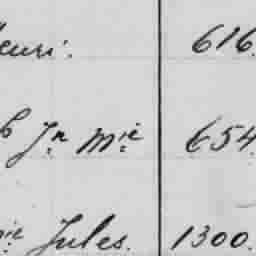 enri. 616.
h Jn Mie 654
ie Jules. 1300.